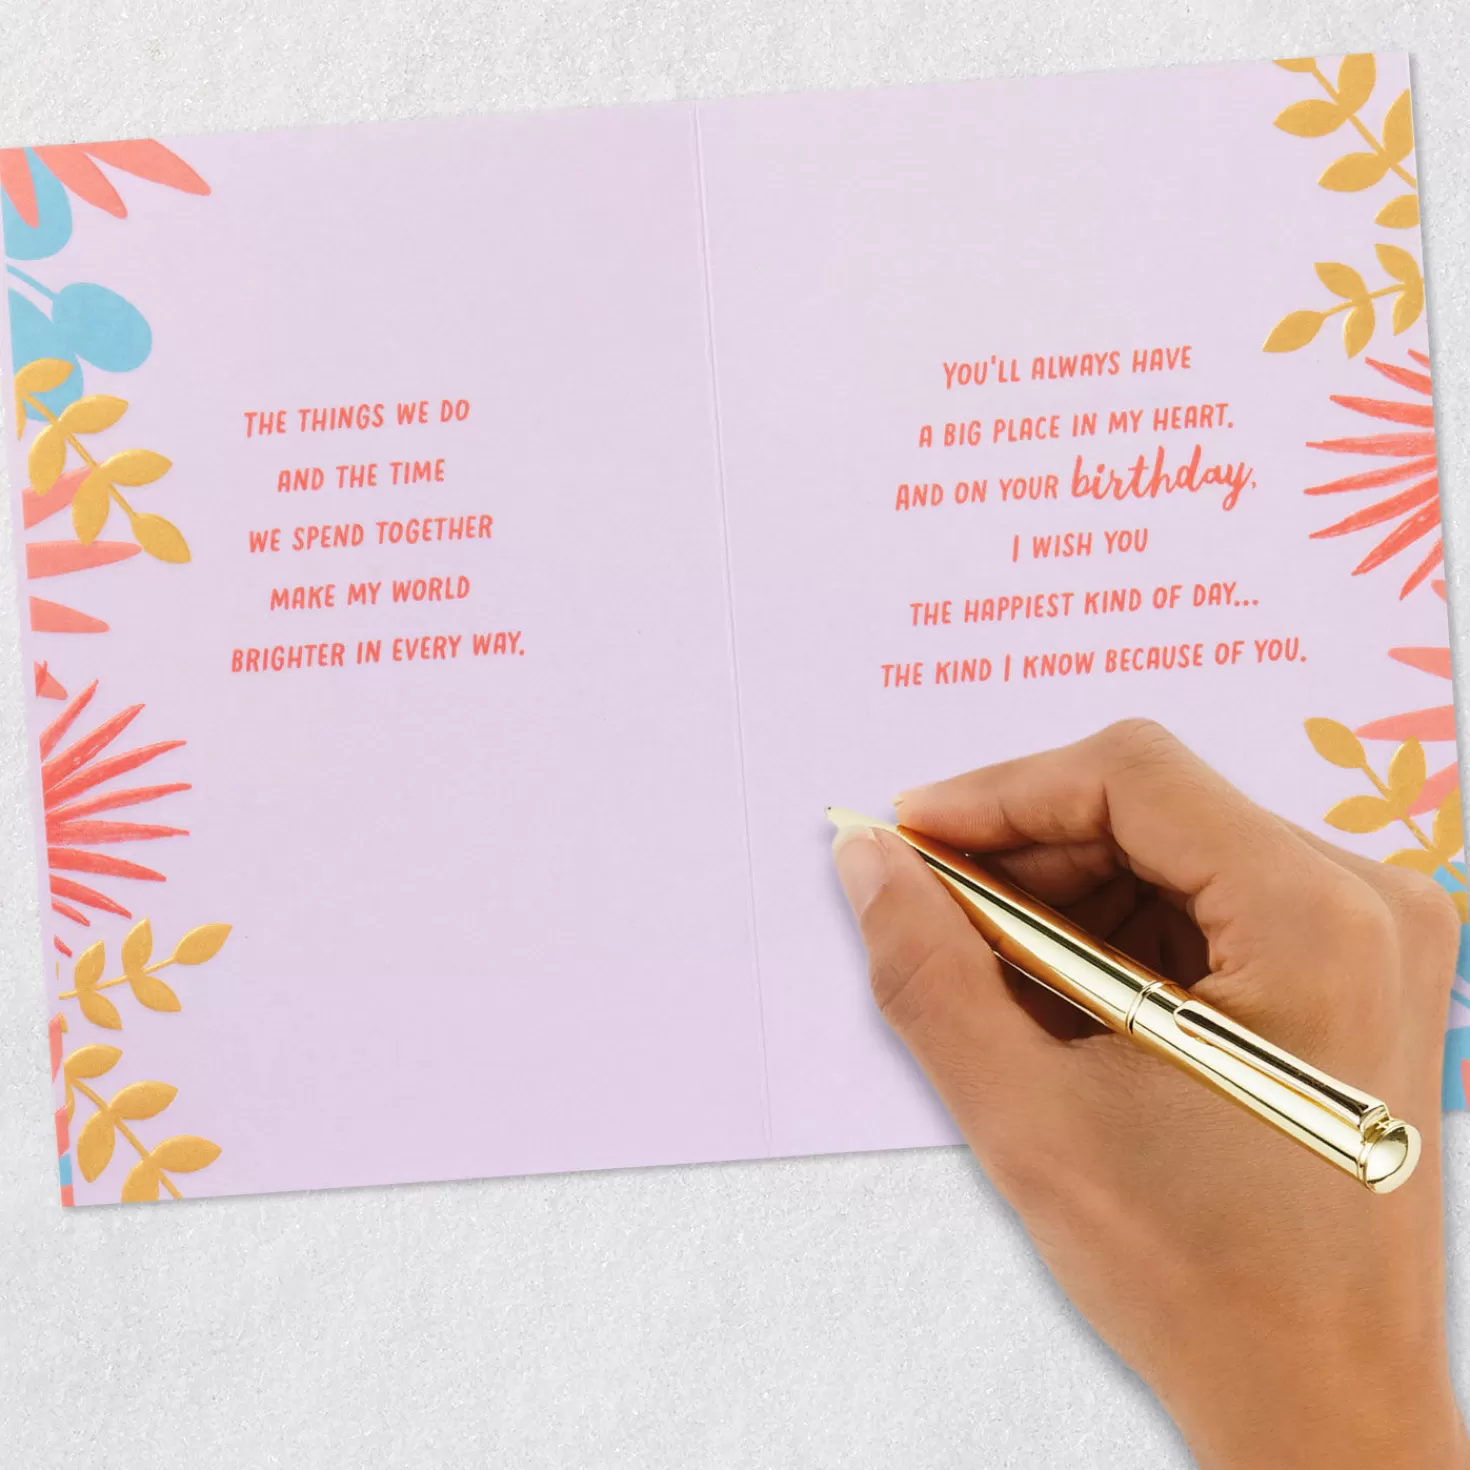 THE THINGS WE DO
AND THE TIME
WE SPEND TOGETHER
MAKE MY WORLD
BRIGHTER IN EVERY WAY.
YOU'LL ALWAYS HAVE
A BIG PLACE IN MY HEART.
AND ON YOUR birthday,
I WISH YOU
THE HAPPIEST KIND OF DAY...
THE KIND I KNOW BECAUSE OF YOU.